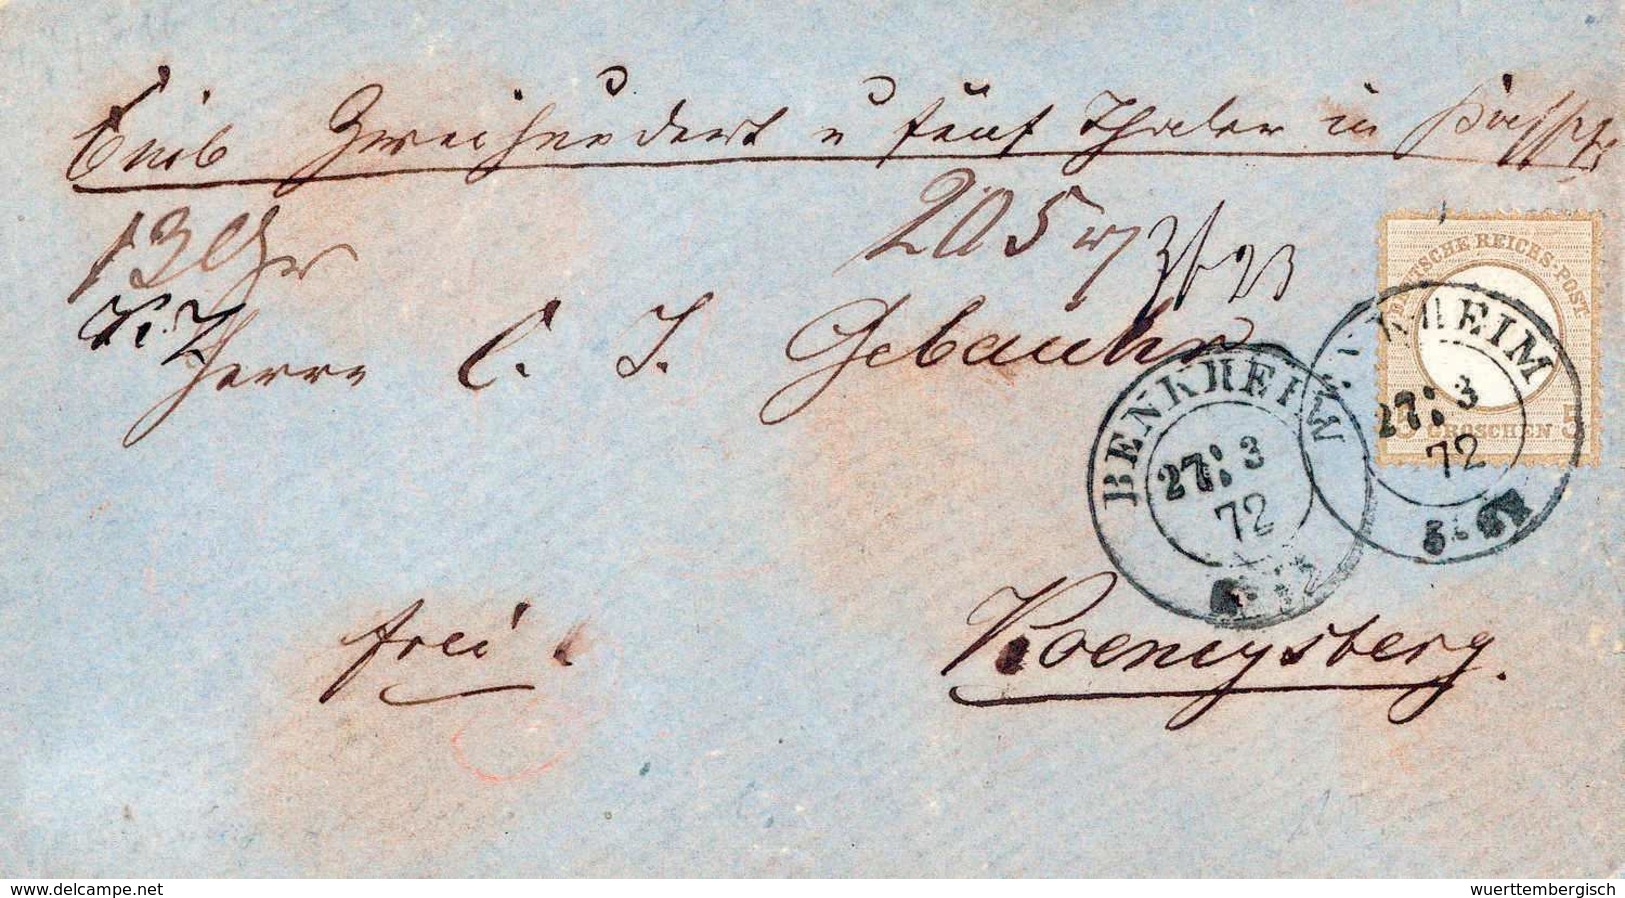 Einb Zweihundert u fünf Thaler in
205
Herrn C. J. Gebauhr
DEUTSCHE REICHS-POST
5 GROSCHEN 5
BENKHEIM
27: 3
72
BENKHEIM
27: 3
72
frei
Koenigsberg.
www.delcampe.net
wuerttembergisch